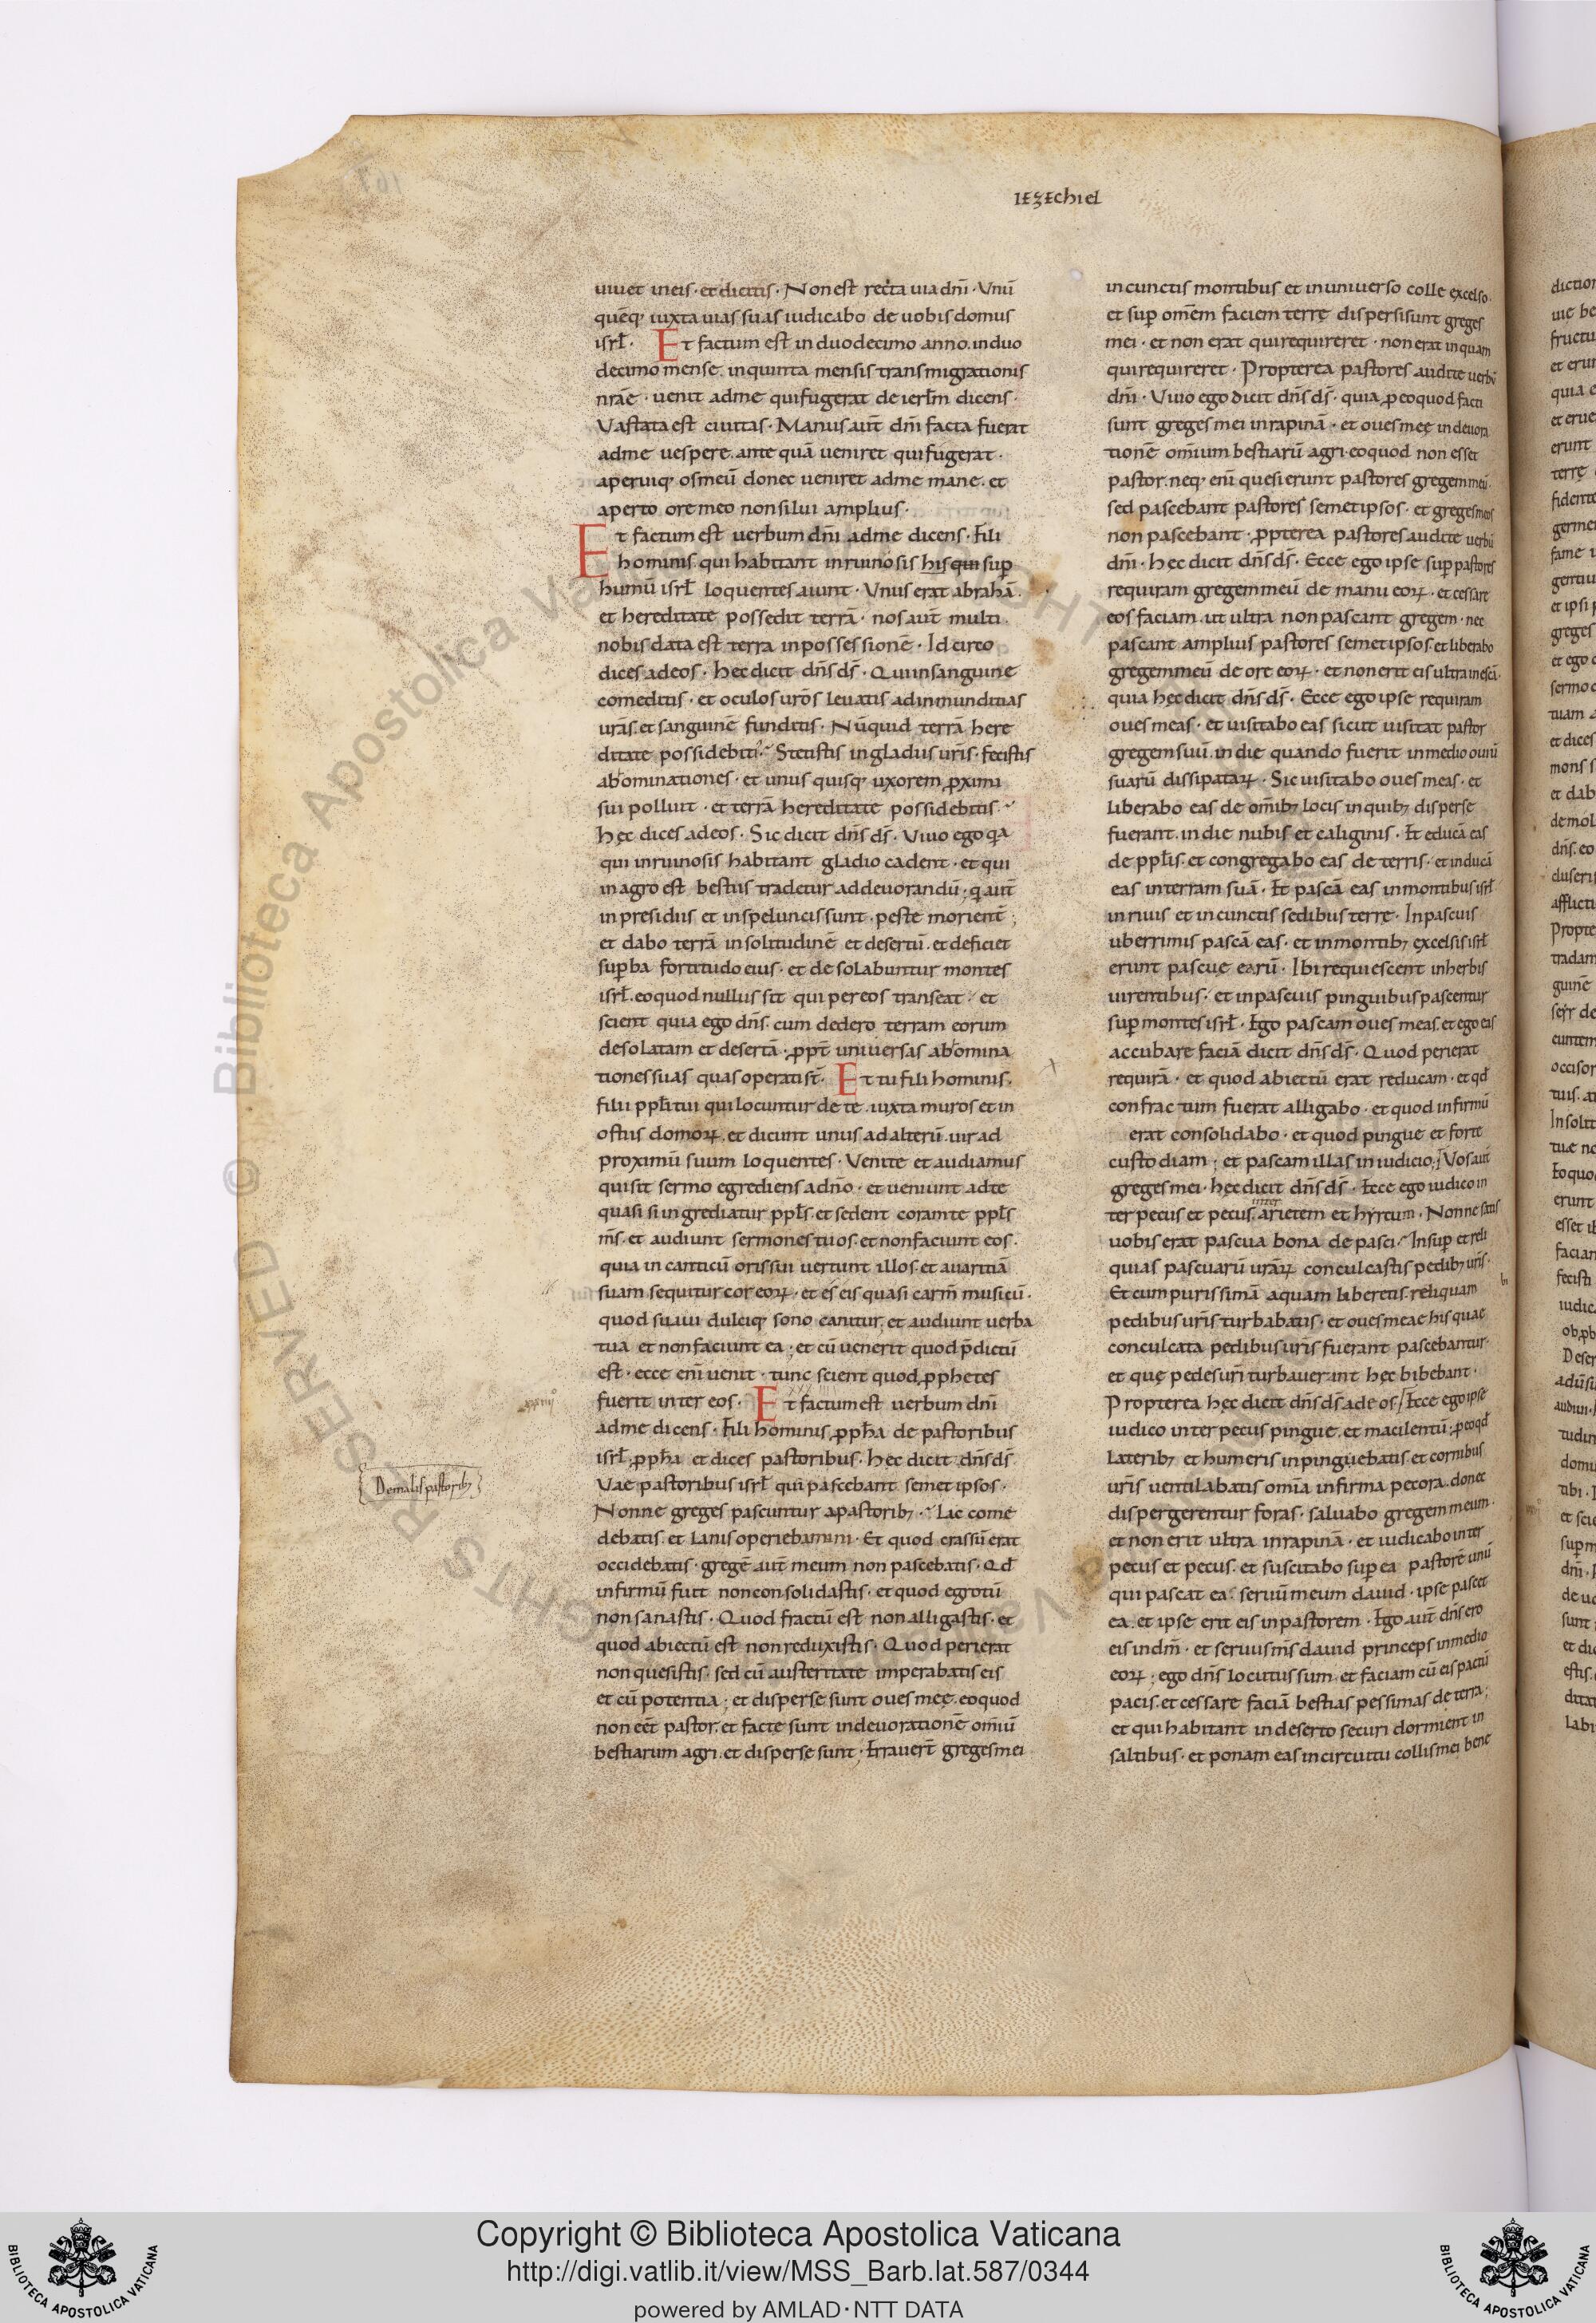 IEZEchiel
uiuet in eis · et dicitis · Non est recta uia dn̄i · Vnū
quēq; iuxta uias suas iudicabo de uobis domus
isrl̄ · Et factum est in duodecimo anno. in duo
decimo mense. in quinta mensis transmigrationis
nr̄ae · uenit ad me qui fugerat de ierl̄m dicens ·
Vastata est ciuitas · Manus aūt dn̄i facta fuerat
ad me uespere. ante quā ueniret qui fugerat ·
aperuitq; os meū donec ueniret ad me mane. et
aperto ore meo non silui amplius ·
Et factum est uerbum dn̄i ad me dicens · Fili
hominis. qui habitant in ruinosis his qui sup̄
humū isrl̄ loquentes aiunt · Vnus erat abrahā ·
et hereditate possedit terrā · nos aūt multi ·
nobis data est terra in possessionē · Idcirco
dices ad eos · Hec dicit dn̄s ds̄ · Qui in sanguine
comeditis · et oculos ur̄os leuatis ad inmunditias
ur̄as. et sanguinē funditis · Nūquid terrā here
ditate possidebitis · Stetistis in gladiis ur̄is · fecistis
abominationes · et unus quisq; uxorem ꝓximi
sui polluit · et terrā hereditate possidebitis ·
Hęc dices ad eos · Sic dicit dn̄s ds̄ · Viuo ego qa
qui in ruinosis habitant gladio cadent · et qui
in agro est bestiis tradetur ad deuorandū · q̄ aūt
in presidiis et in speluncis sunt · peste morient̄ ;
et dabo terrā in solitudinē et desertū. et deficiet
sup̄ba fortitudo eius · et desolabuntur montes
isrl̄. eo quod nullus sit qui per eos transeat · et
scient quia ego dn̄s. cum dedero terram eorum
desolatam et desertā · ꝓpt̄ uniuersas abomina
tiones suas quas operati st̄. Et tu fili hominis ·
filii ppl̄i tui qui locuntur de te. iuxta muros et in
ostiis domoꝝ. et dicunt unus ad alterū. uir ad
proximū suum loquentes · Venite et audiamus
qui sit sermo egrediens a dn̄o · et ueniunt ad te
quasi si ingrediatur ppl̄s. et sedent coram te ppl̄s
m̄s. et audiunt sermones tuos. et non faciunt eos.
quia in canticū oris sui uertunt illos. et auaritiā
suam sequitur cor eoꝝ · et es eis quasi carm̄ musicū ·
quod suaui dulciq; sono canitur. et audiunt uerba
tua et non faciunt ea · et cū uenerit quod p̄dictū
est · ecce eni uenit · tunc scient quod ꝓphetes
fuerit inter eos · Et factum est uerbum dn̄i
ad me dicens · Fili hominis ꝓph̄a de pastoribus
isrl̄ ꝓph̄a et dices pastoribus · Hec dicit dn̄s ds̄
Vae pastoribus isrl̄ qui pascebant semet ipsos ·
Nonne greges pascuntur a pastorib; · Lac come
debatis. et lanis operiebamini · Et quod crassū erat
occidebatis · gregē aūt meum non pascebatis · Qd̄
infirmū fuit non consolidastis · et quod egrotū
non sanastis · Quod fractū est non alligastis · et
quod abiectū est non reduxistis · Quod perierat
non quesistis · sed cū austeritate imperabatis eis
et cū potentia ; et disperse sunt oues meę. eo quod
non eēt pastor. et facte sunt in deuorationē om̄iū
bestiarum agri. et disperse sunt · Errauer̄t greges mei
xxxiiii
De malis pastorib;
in cunctis montibus et in uniuerso colle excelso.
et sup̄ om̄em faciem terrę dispersi sunt greges
mei · et non erat qui requireret · non erat inquam
qui requireret · Propterea pastores audite uerbū
dn̄i · Viuo ego dicit dn̄s ds̄ · quia ꝓ eo quod facti
sunt greges mei in rapinā · et oues meę in deuora
tionē om̄ium bestiarū agri · eo quod non esset
pastor. neq; eni quesierunt pastores gregem meū ·
sed pascebant pastores semet ipsos · et greges meos
non pascebant · ꝓpterea pastores audite uerbū
dn̄i · Hec dicit dn̄s ds̄ · Ecce ego ipse sup̄ pastores
requiram gregem meū de manu eoꝝ · et cessare
eos faciam. ut ultra non pascant gregem · nec
pascant amplius pastores semet ipsos. et liberabo
gregem meū de ore eoꝝ · et non erit eis ultra in escā ·
quia hęc dicit dn̄s ds̄ · Ecce ego ipse requiram
oues meas · et uisitabo eas sicut uisitat pastor
gregem suū. in die quando fuerit in medio ouiū
suarū dissipataꝝ · Sic uisitabo oues meas · et
liberabo eas de om̄ib; locis in quib; disperse
fuerant. in die nubis et caliginis · Et educā eas
de ppl̄is. et congregabo eas de terris · et inducā
eas in terram suā · Et pascā eas in montibus isrl̄
in riuis et in cunctis sedibus terre · In pascuis
uberrimis pascā eas · et in montib; excelsis isrl̄
erunt pascuę earū · Ibi requiescent in herbis
uirentibus · et in pascuis pinguibus pascentur
sup̄ montes isrl̄ · Ego pascam oues meas. et ego eas
accubare faciā dicit dn̄s ds̄ · Quod perierat
requirā · et quod abiectū erat reducam · et qd̄
confractum fuerat alligabo · et quod infirmū
erat consolidabo · et quod pingue et forte
custodiam ; et pascam illas in iudicio ; Vos aūt
greges mei · hęc dicit dn̄s ds̄ · Ecce ego iudico in
inter
ter pecus et pecus. arietem et hyrcum · Nonne satis
uobis erat pascua bona depasci · Insup̄ et reli
quias pascuarū ur̄aꝝ conculcastis pedib; ur̄is ·
Et cum purissimā aquam biberetis. reliquam
pedibus ur̄is turbabatis · et oues meae his quae
conculcata pedibus ur̄is fuerant pascebantur ·
et quę pedes ur̄i turbauerant hęc bibebant ·
Propterea hęc dicit dn̄s ds̄ ad eos / Ecce ego ipse
iudico inter pecus pingue. et macilentū · ꝓ eo qd̄
laterib; et humeris inpingebatis. et cornibus
ur̄is uentilabatis om̄ia infirma pecora. donec
dispergerentur foras · saluabo gregem meum ·
et non erit ultra in rapinā · et iudicabo inter
pecus et pecus. et suscitabo sup̄ ea pastorē unū
qui pascat ea · seruū meum dauid · ipse pascet
ea. et ipse erit eis in pastorem · Ego aūt dn̄s ero
eis in dm̄ · et seruus m̄s dauid princeps in medio
eoꝝ ; ego dn̄s locutus sum · et faciam cū eis pactū
pacis. et cessare faciā bestias pessimas de terra ;
et qui habitant in deserto securi dormient in
saltibus · et ponam eas in circuitu collis mei bene
Copyright © Biblioteca Apostolica Vaticana
http://digi.vatlib.it/view/MSS_Barb.lat.587/0344
powered by AMLAD·NTT DATA
BIBLIOTECA APOSTOLICA VATICANA
BIBLIOTECA APOSTOLICA VATICANA